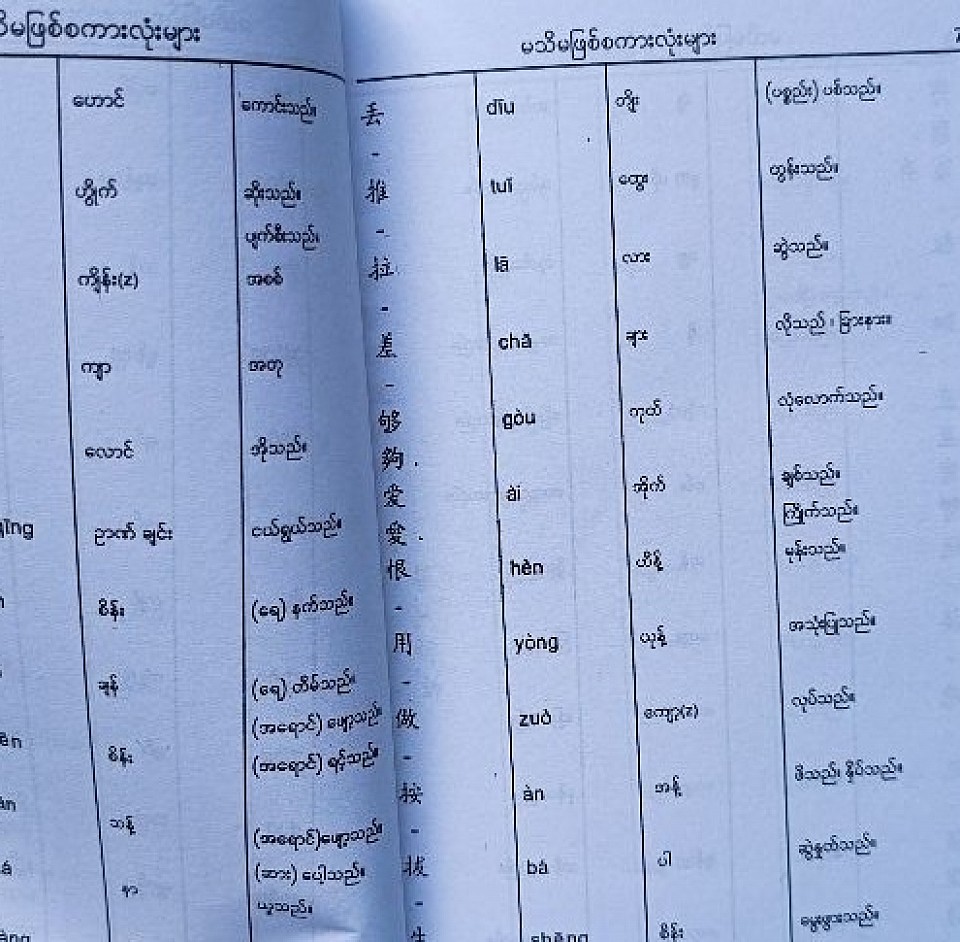 သိမဖြစ်စကားလုံးများ
ဟောင် ကောင်းသည်။
ဟွိုက် ဆိုးသည်။
ပျက်စီးသည်။
ကျိန်း(z) အစစ်
ကျာ အတု
လောင် အိုသည်။
qīng ဉာဏ် ချင်း ငယ်ရွယ်သည်။
စိန်း (ရေ) နက်သည်။
ချန် (ရေ) တိမ်သည်။
(အရောင်) ဖျော့သည်။
စိန်း (အရောင်) ရင့်သည်။
ဘန့် (အရောင်)ဖျော့သည်။
(ဆား) ပေါ့သည်။
နာ ယူသည်။
မသိမဖြစ်စကားလုံးများ
丢 dīu တျိုး (ပစ္စည်း) ပစ်သည်။
-
推 tuī ထွေး တွန်းသည်။
-
拉 lā လား ဆွဲသည်။
-
差 chā ချား လိုသည် ၊ ခြားနား။
-
够 gòu ကုတ် လုံလောက်သည်။
夠 .
爱 ài အိုက် ချစ်သည်။
愛 . ကြိုက်သည်။
恨 hèn ဟိန့် မုန်းသည်။
-
用 yòng ယုန့် အသုံးပြုသည်။
-
做 zuò ကျော့(z) လုပ်သည်။
-
按 àn အန့် ဖိသည်၊ နှိပ်သည်။
-
拔 bá ပါ ဆွဲနှုတ်သည်။
-
生 shēng စိန်း မွေးဖွားသည်။